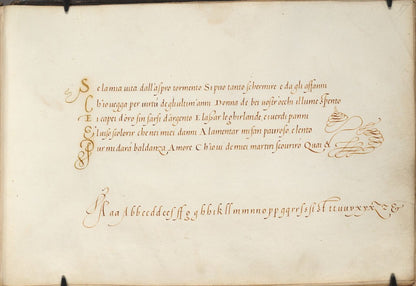 Se la mia vita dall'aspro tormento Si può tanto schermire e da gli affanni
Ch'io vegga per virtù degli ultim anni Donna de bei vostr'occhi il lume spento
E i capei d'oro fin farsi d'argento E lassar le ghirlande, e i verdi panni
E'l viso scolorir che nei miei danni A lamentar mi fan pauroso e lento
Pur mi darà baldanza Amore Ch'io vi de miei martiri scoprirò Quai
A aa A b b c c d d e e f ff g g h h i k ll m m n n o p p q q r r s s